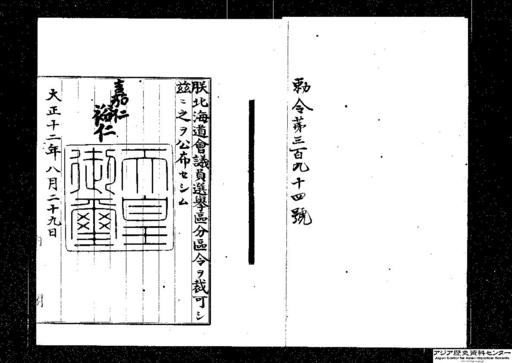 勅令第三百九十四號
朕北海道會議員選擧區分區令ヲ裁可シ
玆ニ之ヲ公布セシム
嘉仁
裕仁
天皇御璽
大正十二年八月二十九日
アジア歴史資料センター
Japan Center for Asian Historical Records